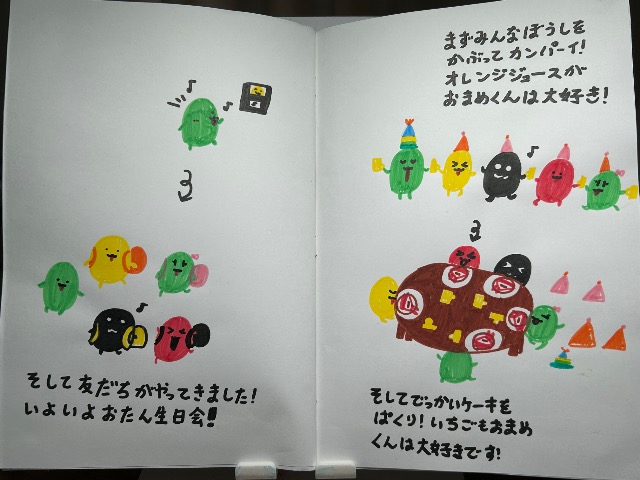 そして友だちがやってきました!
いよいよおたん生日会!!
まずみんなぼうしを
かぶってカンパーイ!
オレンジジュースが
おまめくんは大好き!
そしてでっかいケーキを
ぱくり!いちごもおまめ
くんは大好きです!